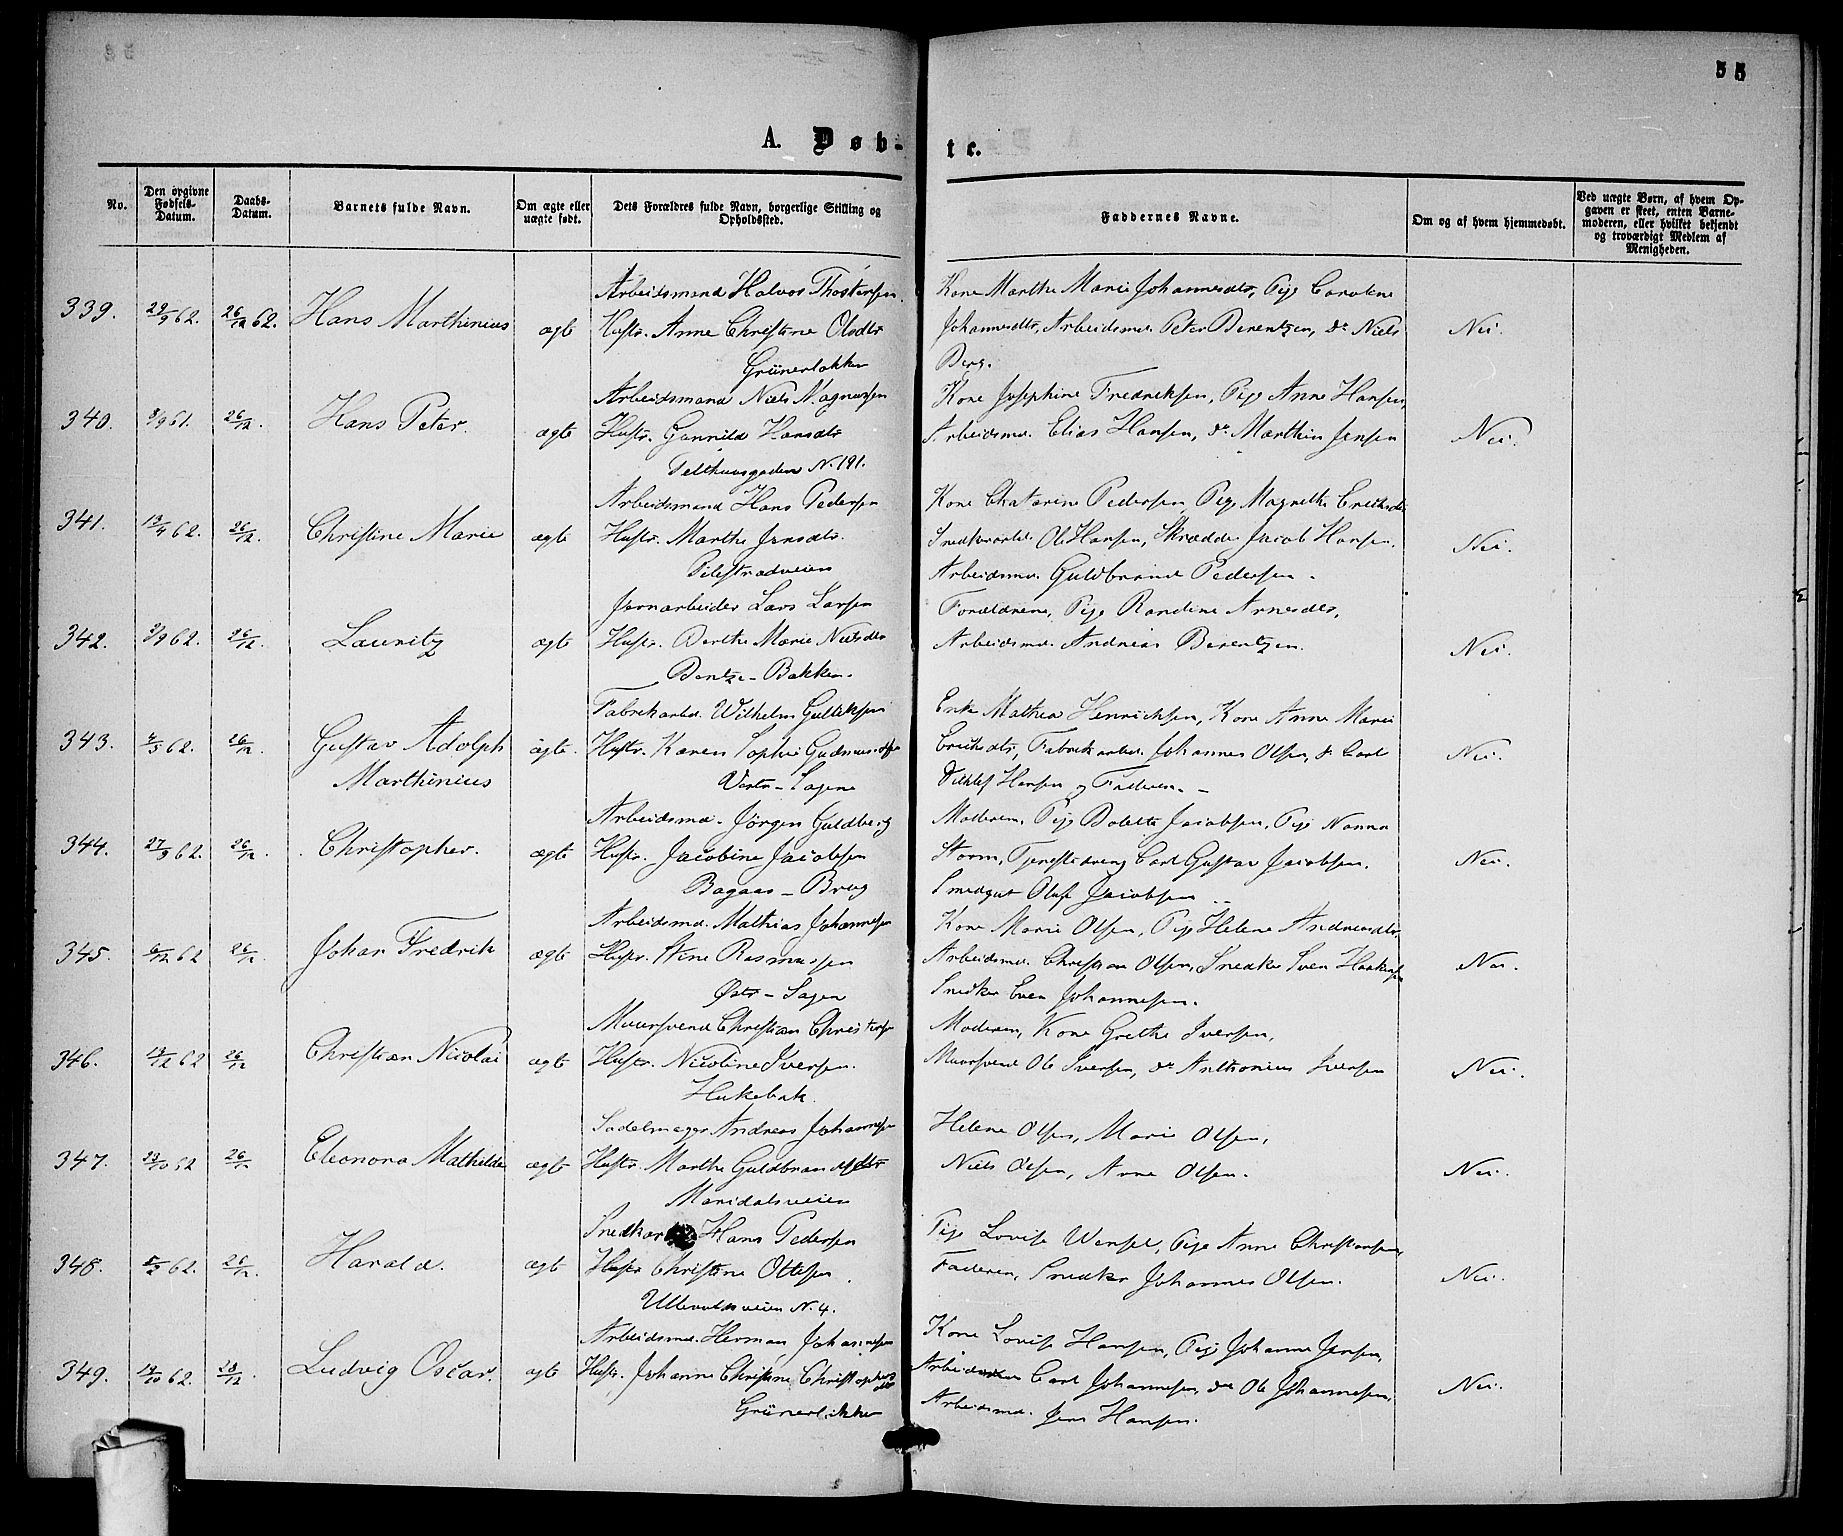 55
A. Døb-te.
No.
Den opgivne Fødsels-Datum.
Daabs-Datum.
Barnets fulde Navn.
Om ægte eller uægte født.
Dets Forældres fulde Navn, borgerlige Stilling og Opholdssted.
Faddernes Navne.
Om og af hvem hjemmedøbt.
Ved uægte Børn, af hvem Opgaven er skeet, enten Barnemoderen, eller hvilket bekjendt og troværdigt Medlem af Menigheden.
Arbeidsmand Halvor Thostensen. Kone Marthe Marie Johannesdtr, Pige Caroline
339. 29/9 62. 26/12 62. Hans Marthinius ægte Hustr. Anne Christine Olsdtr Johannesdtr, Arbeidsmd. Peter Berentzen, do Niels Nei.
Grünerløkken Berg.
Arbeidsmand Niels Magnussen Kone Josephine Fredriksen, Pige Anne Hansen,
340. 3/9 61. 26/12. Hans Peter. ægte Hustr. Gunnild Hansdtr Arbeidsmd. Elias Hansen, do Marthin Jensen Nei.
Telthuusgaden N. 191.
Arbeidsmand Hans Pedersen Kone Chatarine Pedersen, Pige Magrethe Eriksdtr
341. 19/4 62. 26/12. Christine Marie ægte Hustr. Marthe Jensdtr. Snedkerarbd. Ole Hansen, Skrædder Jacob Hansen. Nei.
Pilestrædveien Arbeidsmd. Guldbrand Pedersen.
Jernarbeider Lars Larsen Forældrene, Pige Randine Arnesdtr,
342. 3/9 62. 26/12. Lauritz ægte Hustr. Berthe Marie Nielsdtr Arbeidsmd. Andreas Berentzen. Nei.
Bentze-Bakken.
Fabrikarbd. Wilhelm Gulliksen Enke Mathea Henriksen, Kone Anne Marie
343. 4/5 62. 26/12. Gustav Adolph ægte. Hustr. Karen Sophie Eriksdtr, Fabrikarbd. Johannes Olsen, do Carl Nei.
Marthinius Vestr-Sagene Ditlef Hansen og Faderen.
Arbeidsmd. Jörgen Guldberg Moderen, Pige Bolette Jacobsen, Pige Nanna
344. 27/9 62. 26/12. Christopher. ægte Hustr. Jacobine Jacobsen Storm, Tjenestedreng Carl Gustav Jacobsen. Nei.
Bagaas-Brug Smedgut Oluf Jacobsen
Arbeidsmd. Mathias Johannesen Kone Marie Olsen, Pige Helene Andreasdtr.
345. 6/12 62 26/12. Johan Fredrik ægte Hustr. Stine Rasmussen Arbeidsmd. Christian Olsen, Snedker Sven Haakensen Nei.
Østr-Sagen Snedker Even Johannesen.
Muursvend Christian Christensen Moderen, Kone Grethe Iversen,
346. 19/12 62 26/12 Christian Nicolai ægte Hustr. Nicoline Iversen. Muursvend Ole Iversen, do Anthonius Iversen Nei.
Hukebak.
Sadelmager Andreas Johannesen Helene Olsen, Marie Olsen,
347. 29/10 62 26/12 Eleonora Mathilde ægte Hustr. Marthe Guldbrandsdtr Niels Olsen, Anne Olsen. Nei.
Maridalsveien
Snedker Hans Pedersen Pige Lovise Wensel, Pige Anne Christiansen,
348. 5/2 62. 26/12. Harald. ægte Hustr Christine Ottesen Faderen, Snedker Johannes Olsen. Nei.
Ullevoldsveien N. 4.
Arbeidsmd. Herman Johannesen Kone Lovise Hansen, Pige Johanne Jensen,
349. 19/10 62. 28/12. Ludvig Oscar. ægte Hustr. Johanne Christine Christophersdtr Carl Johannesen, do Ole Johannesen, Nei.
Grünerløkken Arbeidsmd. Jens Hansen.